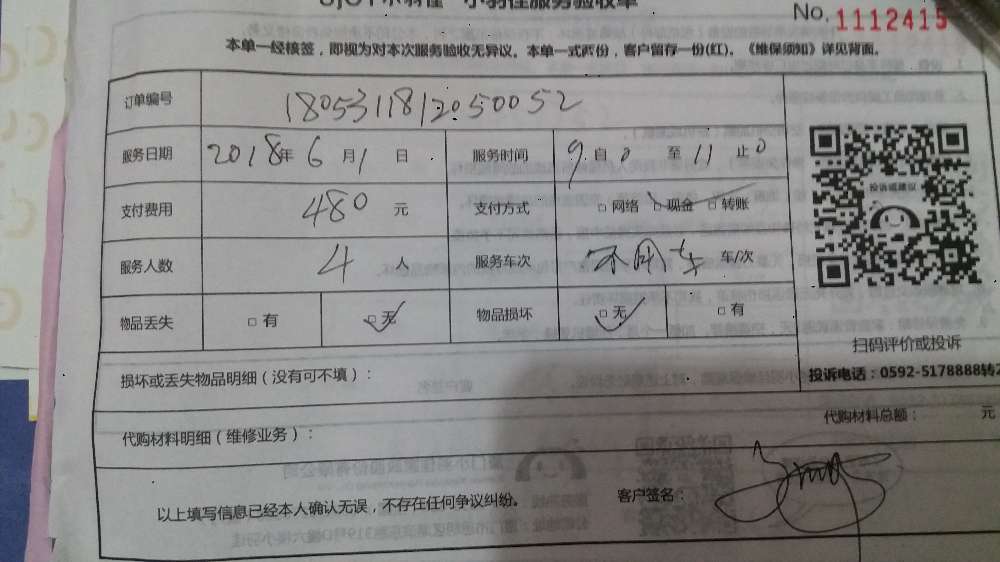 小羽佳服务验收单
No. 1112415
本单一经核签，即视为对本次服务验收无异议。本单一式两份，客户留存一份(红)。《维保须知》详见背面。
订单编号 180531181205 0052
服务日期 2018年 6 月 1 日 服务时间 9 自 0 至 11 止 0
支付费用 480 元 支付方式 □网络 □现金 □转账
服务人数 4 人 服务车次 不用车 车/次
物品丢失 □有 □无 物品损坏 □无 □有
扫码评价或投诉
损坏或丢失物品明细（没有可不填）：
投诉电话：0592-5178888转2
代购材料总额： 元
代购材料明细（维修业务）：
以上填写信息已经本人确认无误，不存在任何争议纠纷。 客户签名：